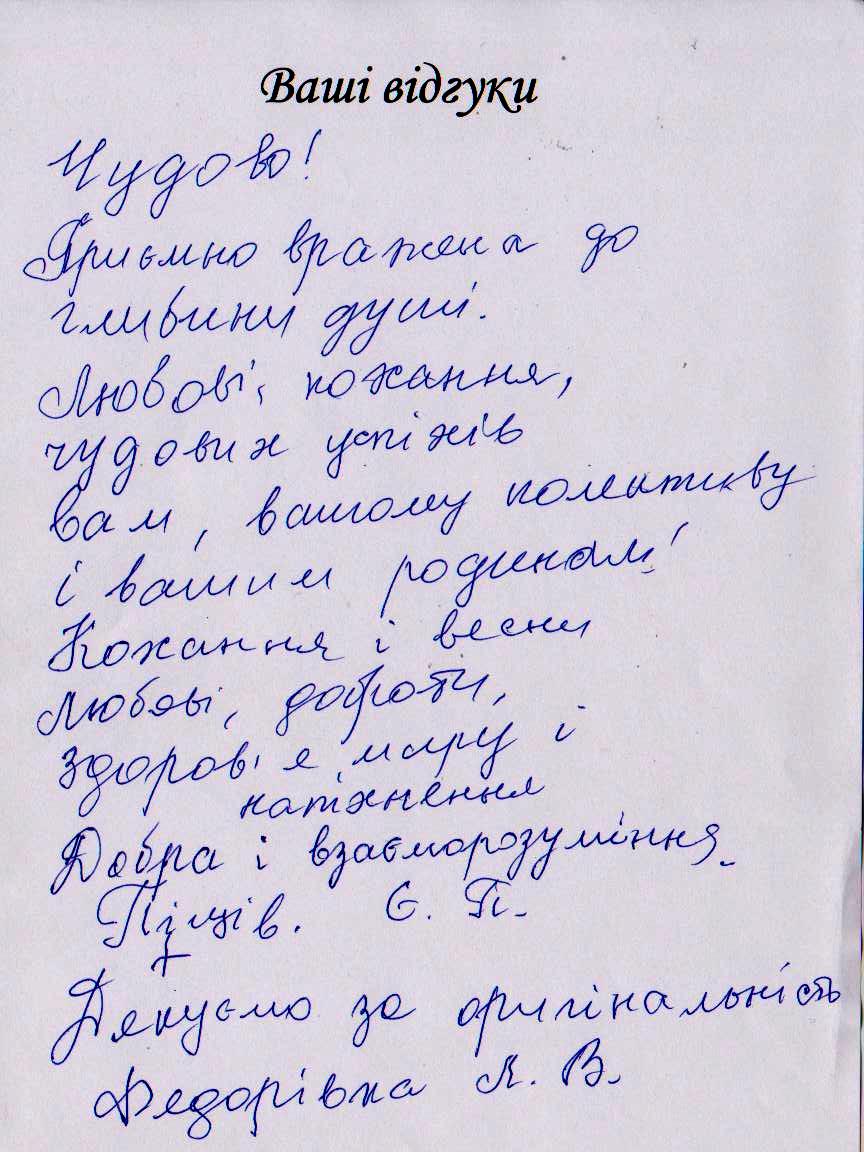 Ваші відгуки
Чудово!
Приємно вражена до
глибини душі.
Любові, кохання,
чудових успіхів
вам, вашому колективу
і вашим родинам!
Кохання і весни
Любові, доброти,
здоров'я, миру і
натхнення
Добра і взаєморозуміння.
Є. П.
Дякуємо за оригінальність
Федорівка Л. В.